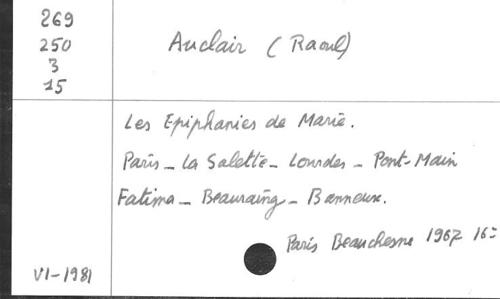 269
250
3
15
Auclair (Raoul)
Les Epiphanies de Marie.
Paris - La Salette - Lourdes - Pont-Main
Fatima - Beauraing - Banneux.
Paris Beauchesne 1967 16=
VI-1981